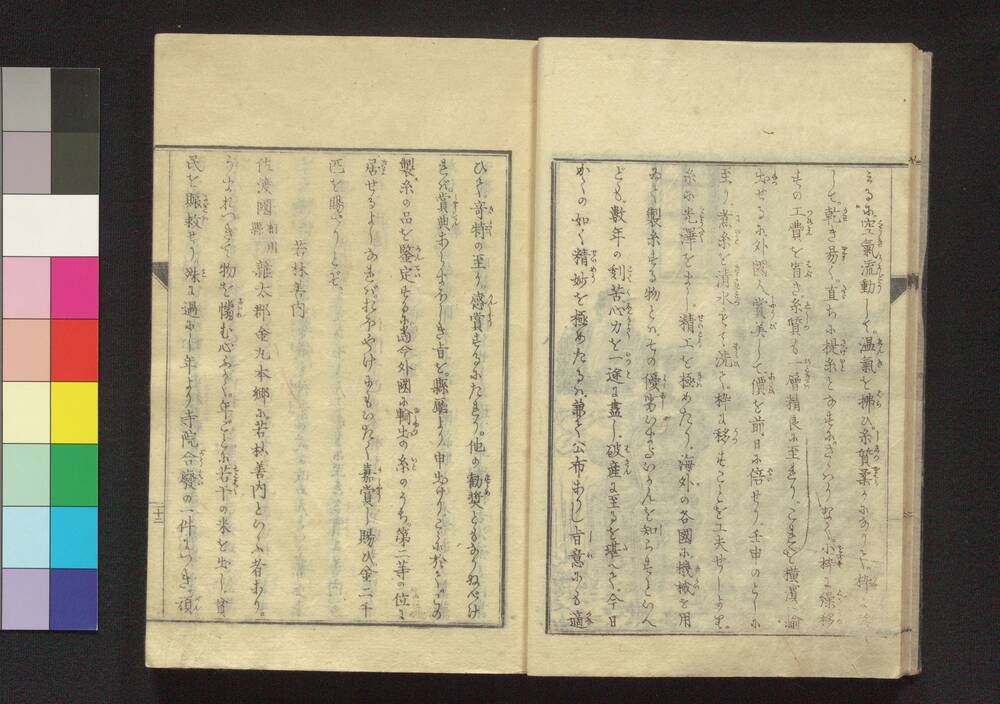 るに空氣流動して温氣を拂ひ糸質柔かにありて枠
して乾き易く直ちに提糸となせばさはりなく小枠に繰移
すの工費を省き糸質も一層精良に至れりこれを横濱へ輸
出せるに外國人賞美して價を前日に倍せり壬申のとしに
至り煮糸を清水をもて洗て枠に移すことを工夫せしかば
糸に光澤をまし精工を極めたり海外の各國に機械を用
ゐて製糸する物とハその優劣いまだいかんを知らずといへ
ども數年の刻苦心力を一途に盡し破産に至るを堪へて今日
かくの如く精妙を極めたるハ兼て公布ありし旨意にも適
ひ奇特の至り感賞するにたえたり他の勸奨ともありぬべけ
れバ賞典あらまほしき旨を縣廳より申出けりこゝに於てその
製糸の品を鑒定するに當今外國に輸出の糸のうち第二等の位に
居せるよしなればおほやけにもいたく嘉賞し賜ひ金二千
匹を賜へりとぞ
若林善内
佐渡國相川縣雜太郡金丸本郷に若林善内といふ者あり
うまれつきて物を憐む心ふかく年ごとに若干の米を出し窮
民を賑救せり殊に過にし年より寺院合廢の一件につき頑
十二